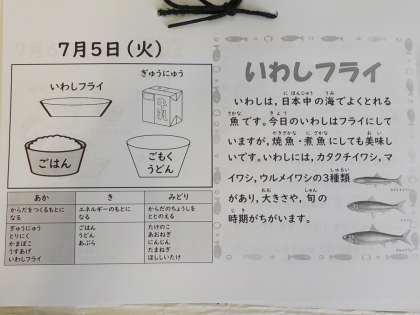 7月5日(火)
いわしフライ
ぎゅうにゅう
牛乳
ごはん
ごもく
うどん
あか
き
みどり
からだをつくるもとに
なる
エネルギーのもとに
なる
からだのちょうしを
ととのえる
ぎゅうにゅう
とりにく
かまぼこ
うすあげ
いわしフライ
ごはん
うどん
あぶら
たけのこ
あおねぎ
にんじん
たまねぎ
ほししいたけ
いわしフライ
いわしは,日本中の海でよくとれる
魚です。今日のいわしはフライにして
いますが,焼魚・煮魚にしても美味し
いです。いわしには,カタクチイワシ,マ
イワシ,ウルメイワシの3種類
があり,大きさや,旬の
時期がちがいます。